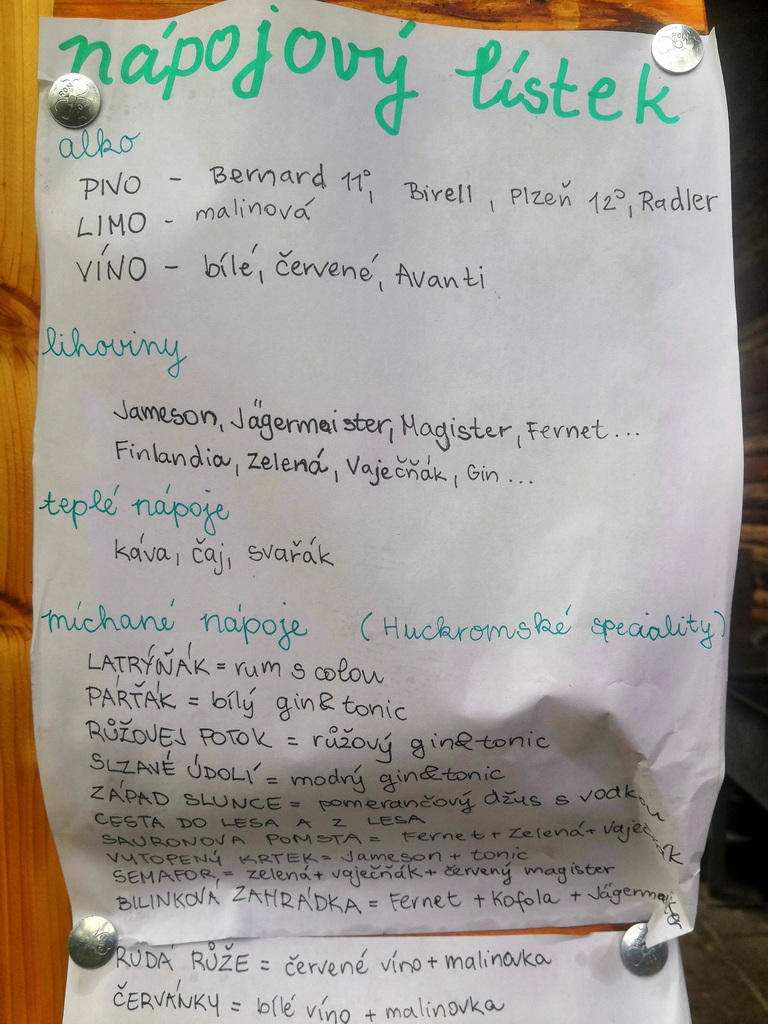 nápojový lístek
alko
PIVO - Bernard 11°, Birell, Plzeň 12°, Radler
LIMO - malinová
VÍNO - bílé, červené, Avanti
lihoviny
Jameson, Jägermeister, Magister, Fernet...
Finlandia, Zelená, Vaječňák, Gin...
teplé nápoje
káva, čaj, svařák
míchané nápoje (Huckromské speciality)
LATRÝŇÁK = rum s colou
PÁRŤÁK = bílý gin&tonic
RŮŽOVEJ POTOK = růžový gin&tonic
SLZAVÉ ÚDOLÍ = modrý gin&tonic
ZÁPAD SLUNCE = pomerančový džus s vodkou
CESTA DO LESA A Z LESA
SAURONOVA POMSTA = Fernet + Zelená + Vaječňák
VYTOPENÝ KRTEK = Jameson + tonic
SEMAFOR = zelená + vaječňák + červený magister
BILINKOVÁ ZAHRÁDKA = Fernet + Kofola + Jägermeister
RUDÁ RŮŽE = červené víno + malinovka
ČERVÁNKY = bílé víno + malinovka